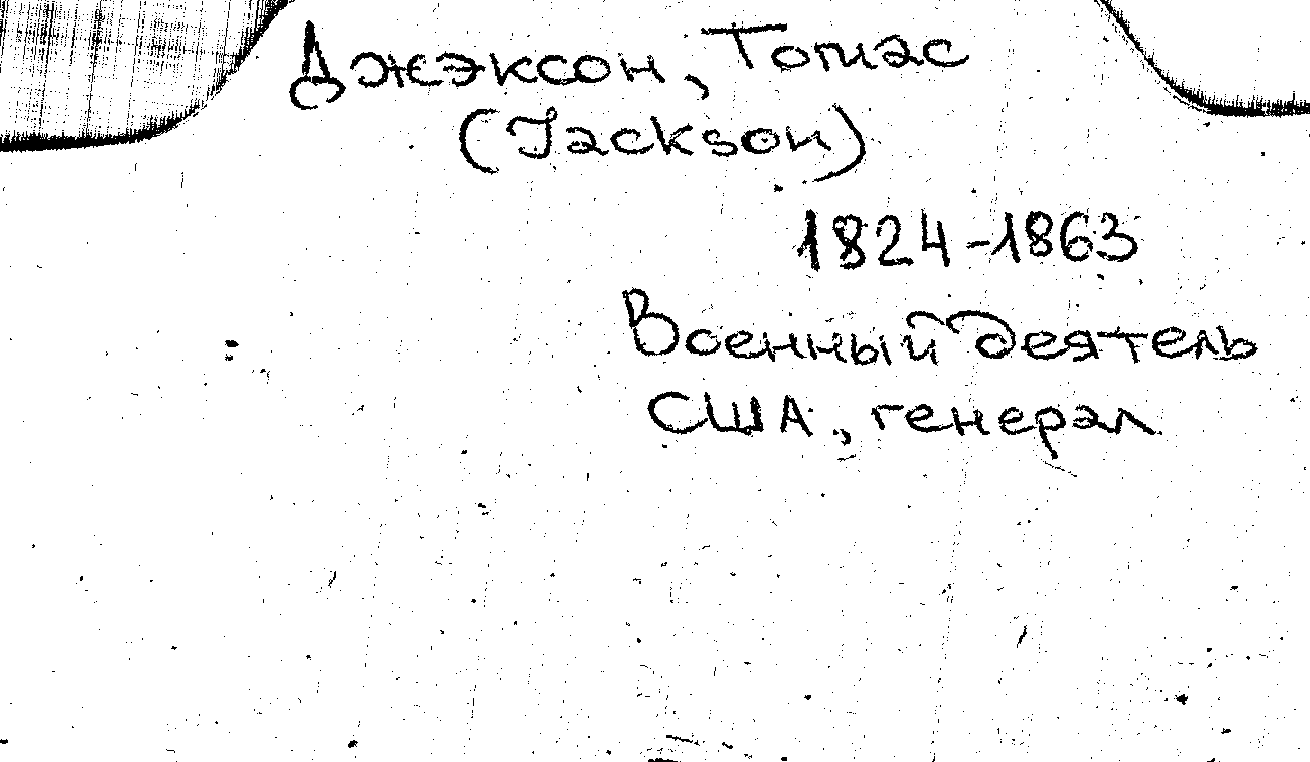 Джэксон, Томас
(Jackson)
1824-1863
Военный деятель
США, генерал